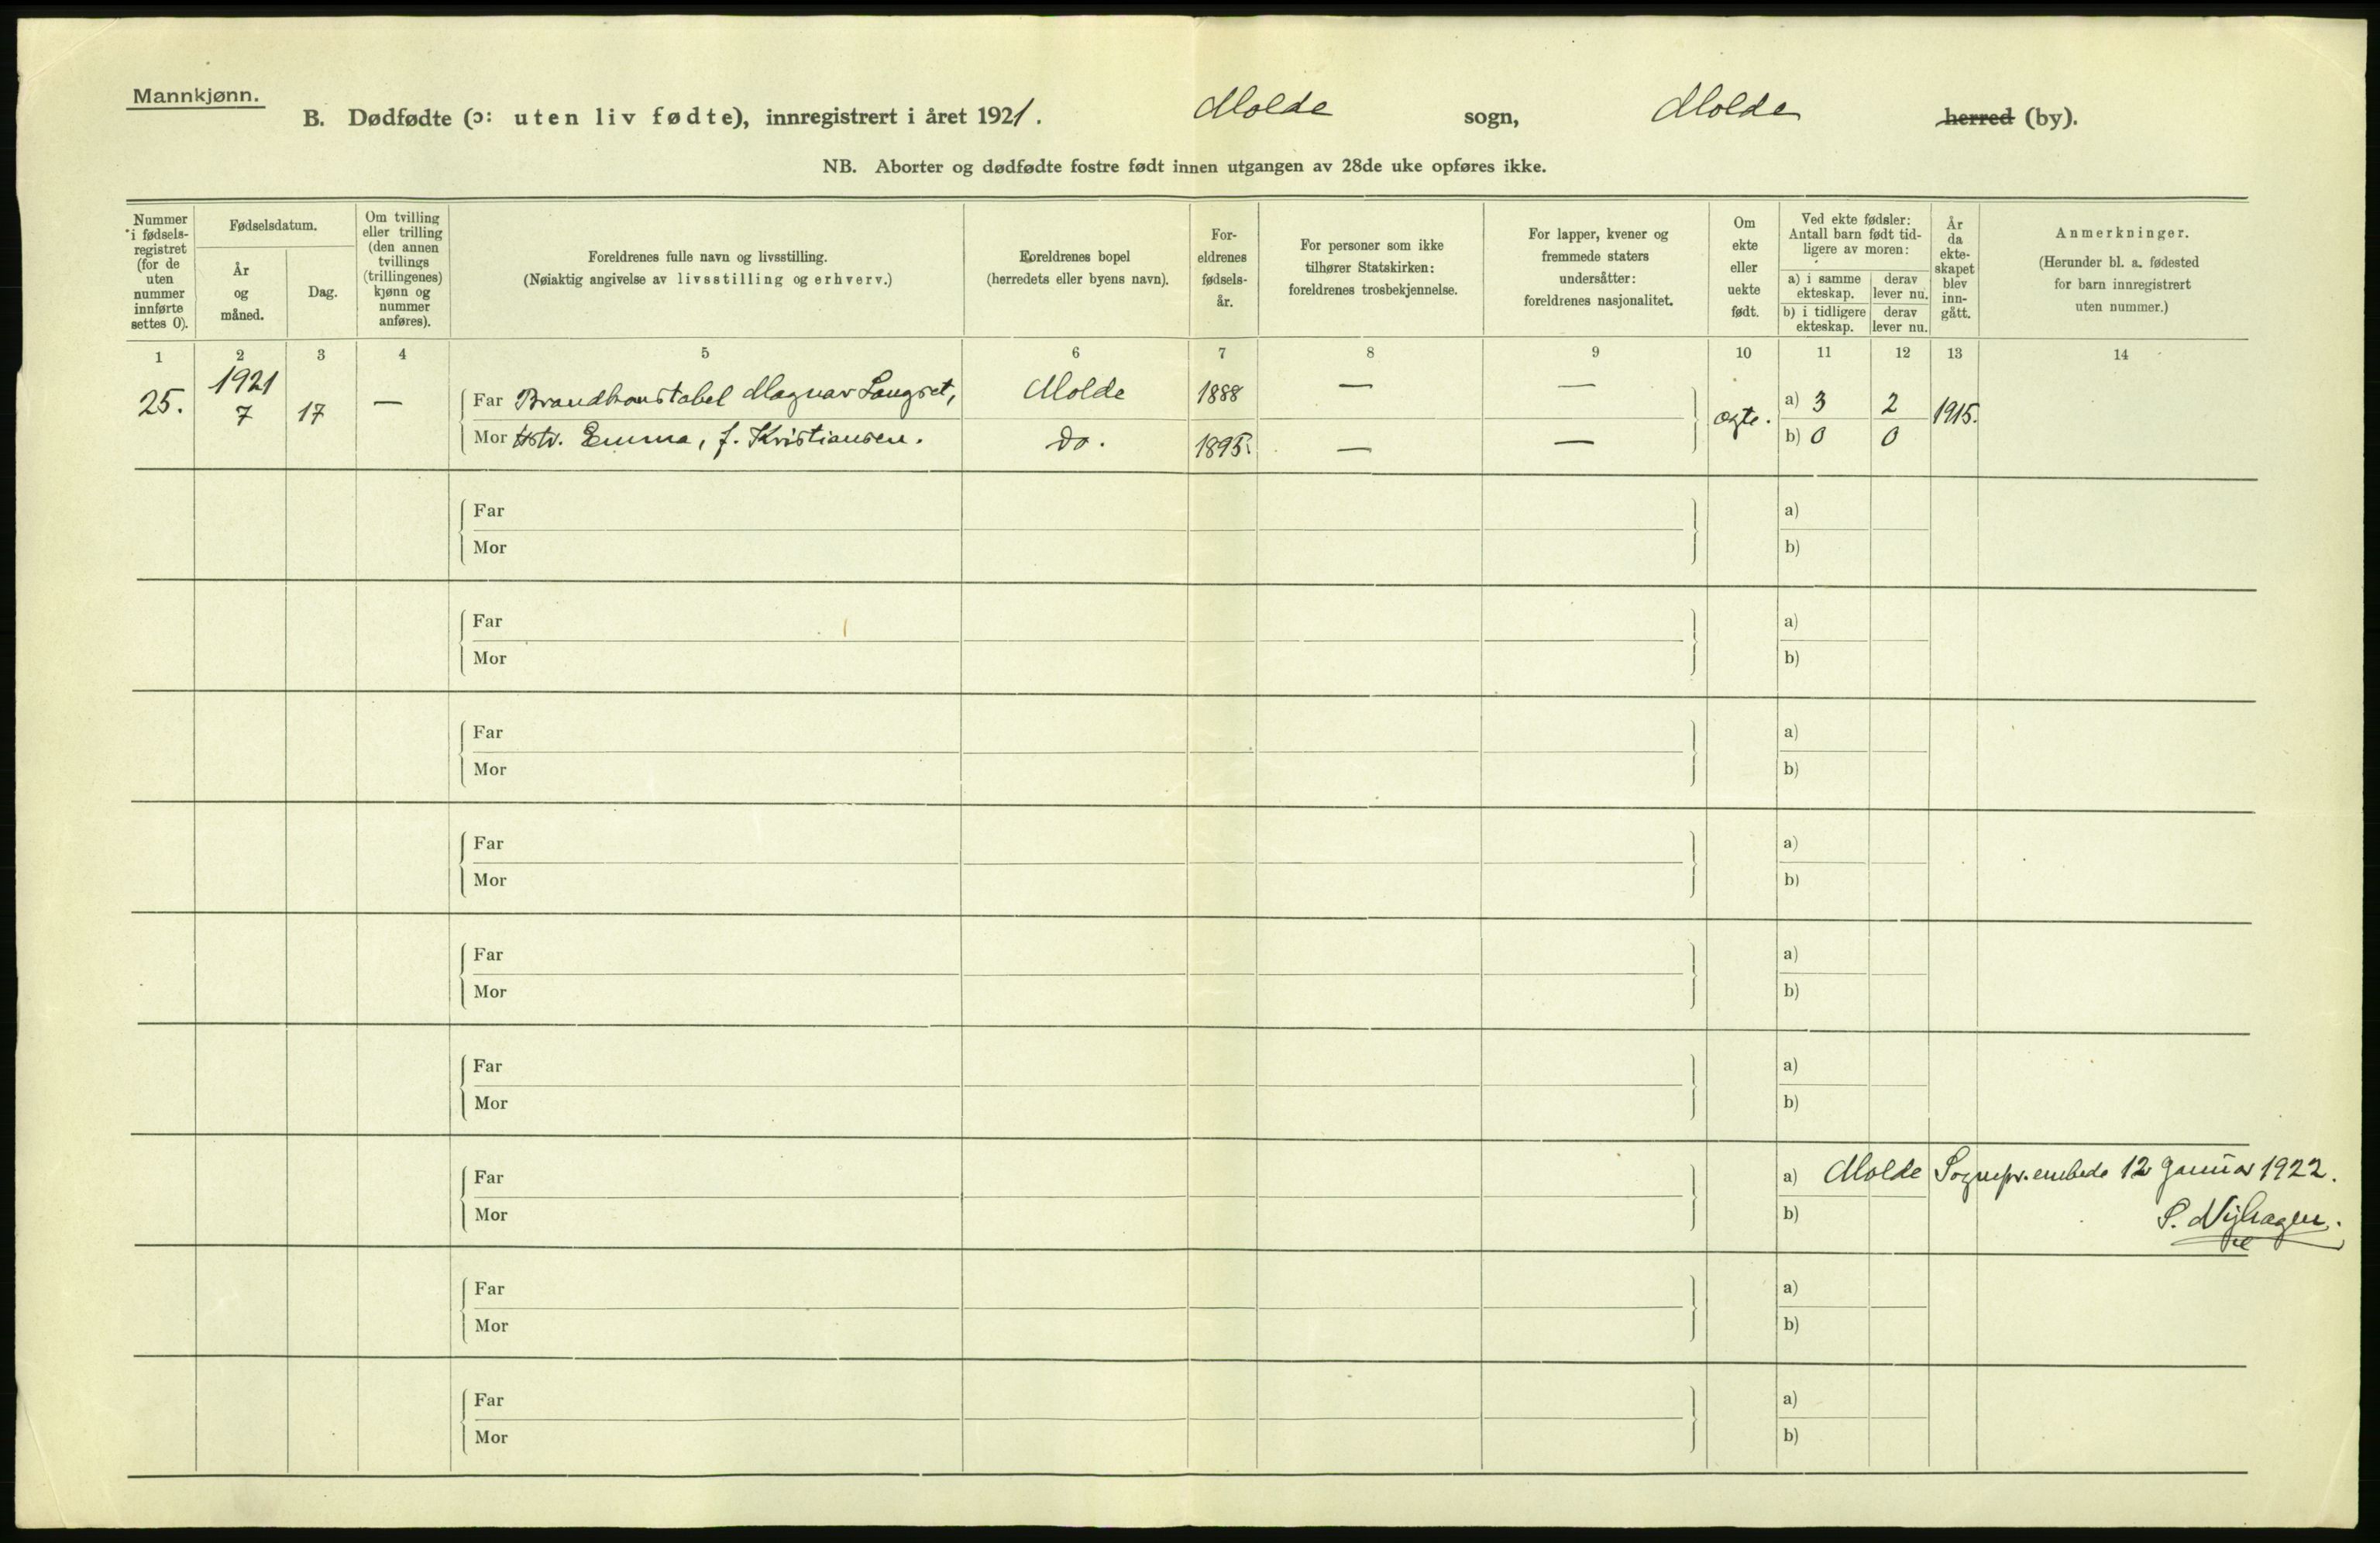 Mannkjønn.
B. Dødfødte (ɔ: uten liv fødte), innregistrert i året 1921. Molde sogn, Molde herred (by).
NB. Aborter og dødfødte fostre født innen utgangen av 28de uke opføres ikke.
Nummer i fødsels-registret (for de uten nummer innførte settes 0).
Fødselsdatum.
År og måned.
Dag.
Om tvilling eller trilling (den annen tvillings (trillingenes) kjønn og nummer anføres).
Foreldrenes fulle navn og livsstilling.
(Nøiaktig angivelse av livsstilling og erhverv.)
Foreldrenes bopel
(herredets eller byens navn).
For-eldrenes fødsels-år.
For personer som ikke
tilhører Statskirken:
foreldrenes trosbekjennelse.
For lapper, kvener og
fremmede staters
undersåtter:
foreldrenes nasjonalitet.
Om ekte eller uekte født.
Ved ekte fødsler:
Antall barn født tid-
ligere av moren:
a) i samme ekteskap.
derav lever nu.
b) i tidligere ekteskap.
derav lever nu.
År da ekte-skapet blev inn-gått.
Anmerkninger.
(Herunder bl. a. fødested
for barn innregistrert
uten nummer.)
1 2 3 4 5 6 7 8 9 10 11 12 13 14
25. 1921 7 17 —
Far Brandkonstabel Magnar Langset, Molde 1888 — —
Mor Hstr. Emma, f. Kristiansen. do. 1895. — —
ægte. a) 3 2 1915.
b) 0 0
Far a)
Mor b)
Far a)
Mor b)
Far a)
Mor b)
Far a)
Mor b)
Far a)
Mor b)
Far a)
Mor b)
Far a) Molde Sognepr.embede 12 Januar 1922.
Mor b) S. Nyhagen.
Far a)
Mor b)
Far a)
Mor b)